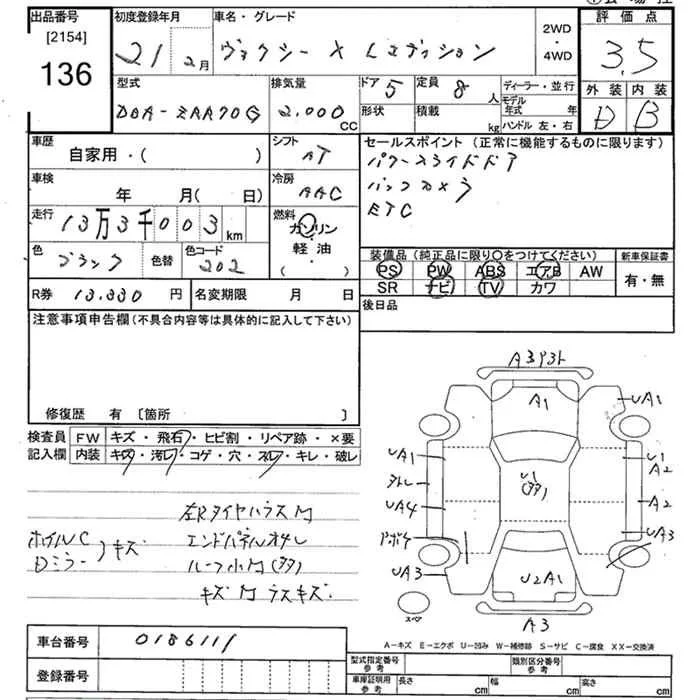 出品番号
[2154]
136
初度登録年月
21 2月
車名・グレード
ヴォクシー X Lエディション
2WD
・
4WD
評価点
3.5
外装 内装
D B
型式
DBA-ZRR70G
排気量
2.000 cc
ドア 5
形状
定員 8 人
積載 kg
ディーラー・並行
モデル年式 年
ハンドル 左・右
車歴
自家用・( )
シフト
AT
車検
年 月( 日)
冷房
AAC
走行
13万3千003km
燃料
ガソリン
・
軽油
( )
色 ブラック 色替
色コード 202
R券 13.330 円
名変期限 月 日
セールスポイント(正常に機能するものに限ります)
パワースライドドア
バックカメラ
ETC
装備品(純正品に限り○をつけてください)
PS PW ABS エアB AW
SR ナビ TV カワ
新車保証書
有・無
後日品
注意事項申告欄(不具合内容等は具体的に記入して下さい)
修復歴 有 [箇所 ]
検査員
記入欄
FW キズ・飛石・ヒビ割・リペア跡・×要
内装 キズ・汚レ・コゲ・穴・スレ・キレ・破レ
左Rタイヤハウス
ホイルC
Dミラー
キズ
エンドパネル
ルーフ小
キズ
A1
U1
U2A1
UA1
UA1
UA4
UA3
UA1
A2
A2
UA3
スペア
A3
A-キズ E-エクボ U-凹み W-補修跡 S-サビ C-腐食 XX-交換済
車台番号 0186111
登録番号
型式指定番号
参考
類別区分番号
参考
車庫証明用
参考
長さ cm 幅 cm 高さ cm